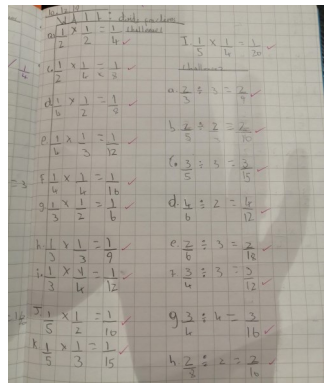 a. 1/2 × 1/2 = 1/4
c. 1/2 × 1/4 = 1/8
d. 1/4 × 1/2 = 1/8
e. 1/4 × 1/3 = 1/12
f. 1/4 × 1/4 = 1/16
g. 1/3 × 1/2 = 1/6
h. 1/3 × 1/3 = 1/9
i. 1/3 × 1/4 = 1/12
J. 1/5 × 1/2 = 1/10
K. 1/5 × 1/3 = 1/15
1/5 × 1/4 = 1/20
challenge
a. 2/3 ÷ 3 = 2/9
b. 2/5 ÷ 2 = 2/10
c. 3/5 ÷ 3 = 3/15
d. 4/6 ÷ 2 = 4/12
e. 2/6 ÷ 3 = 2/18
f. 3/4 ÷ 3 = 3/12
g. 3/4 ÷ 4 = 3/16
h. 2/8 ÷ 2 = 2/16